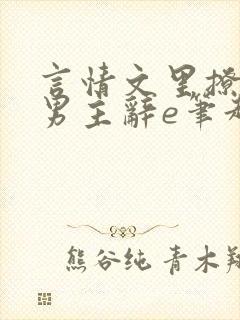 言情文里撩
男主辭e筆
熊谷纯 青木翔